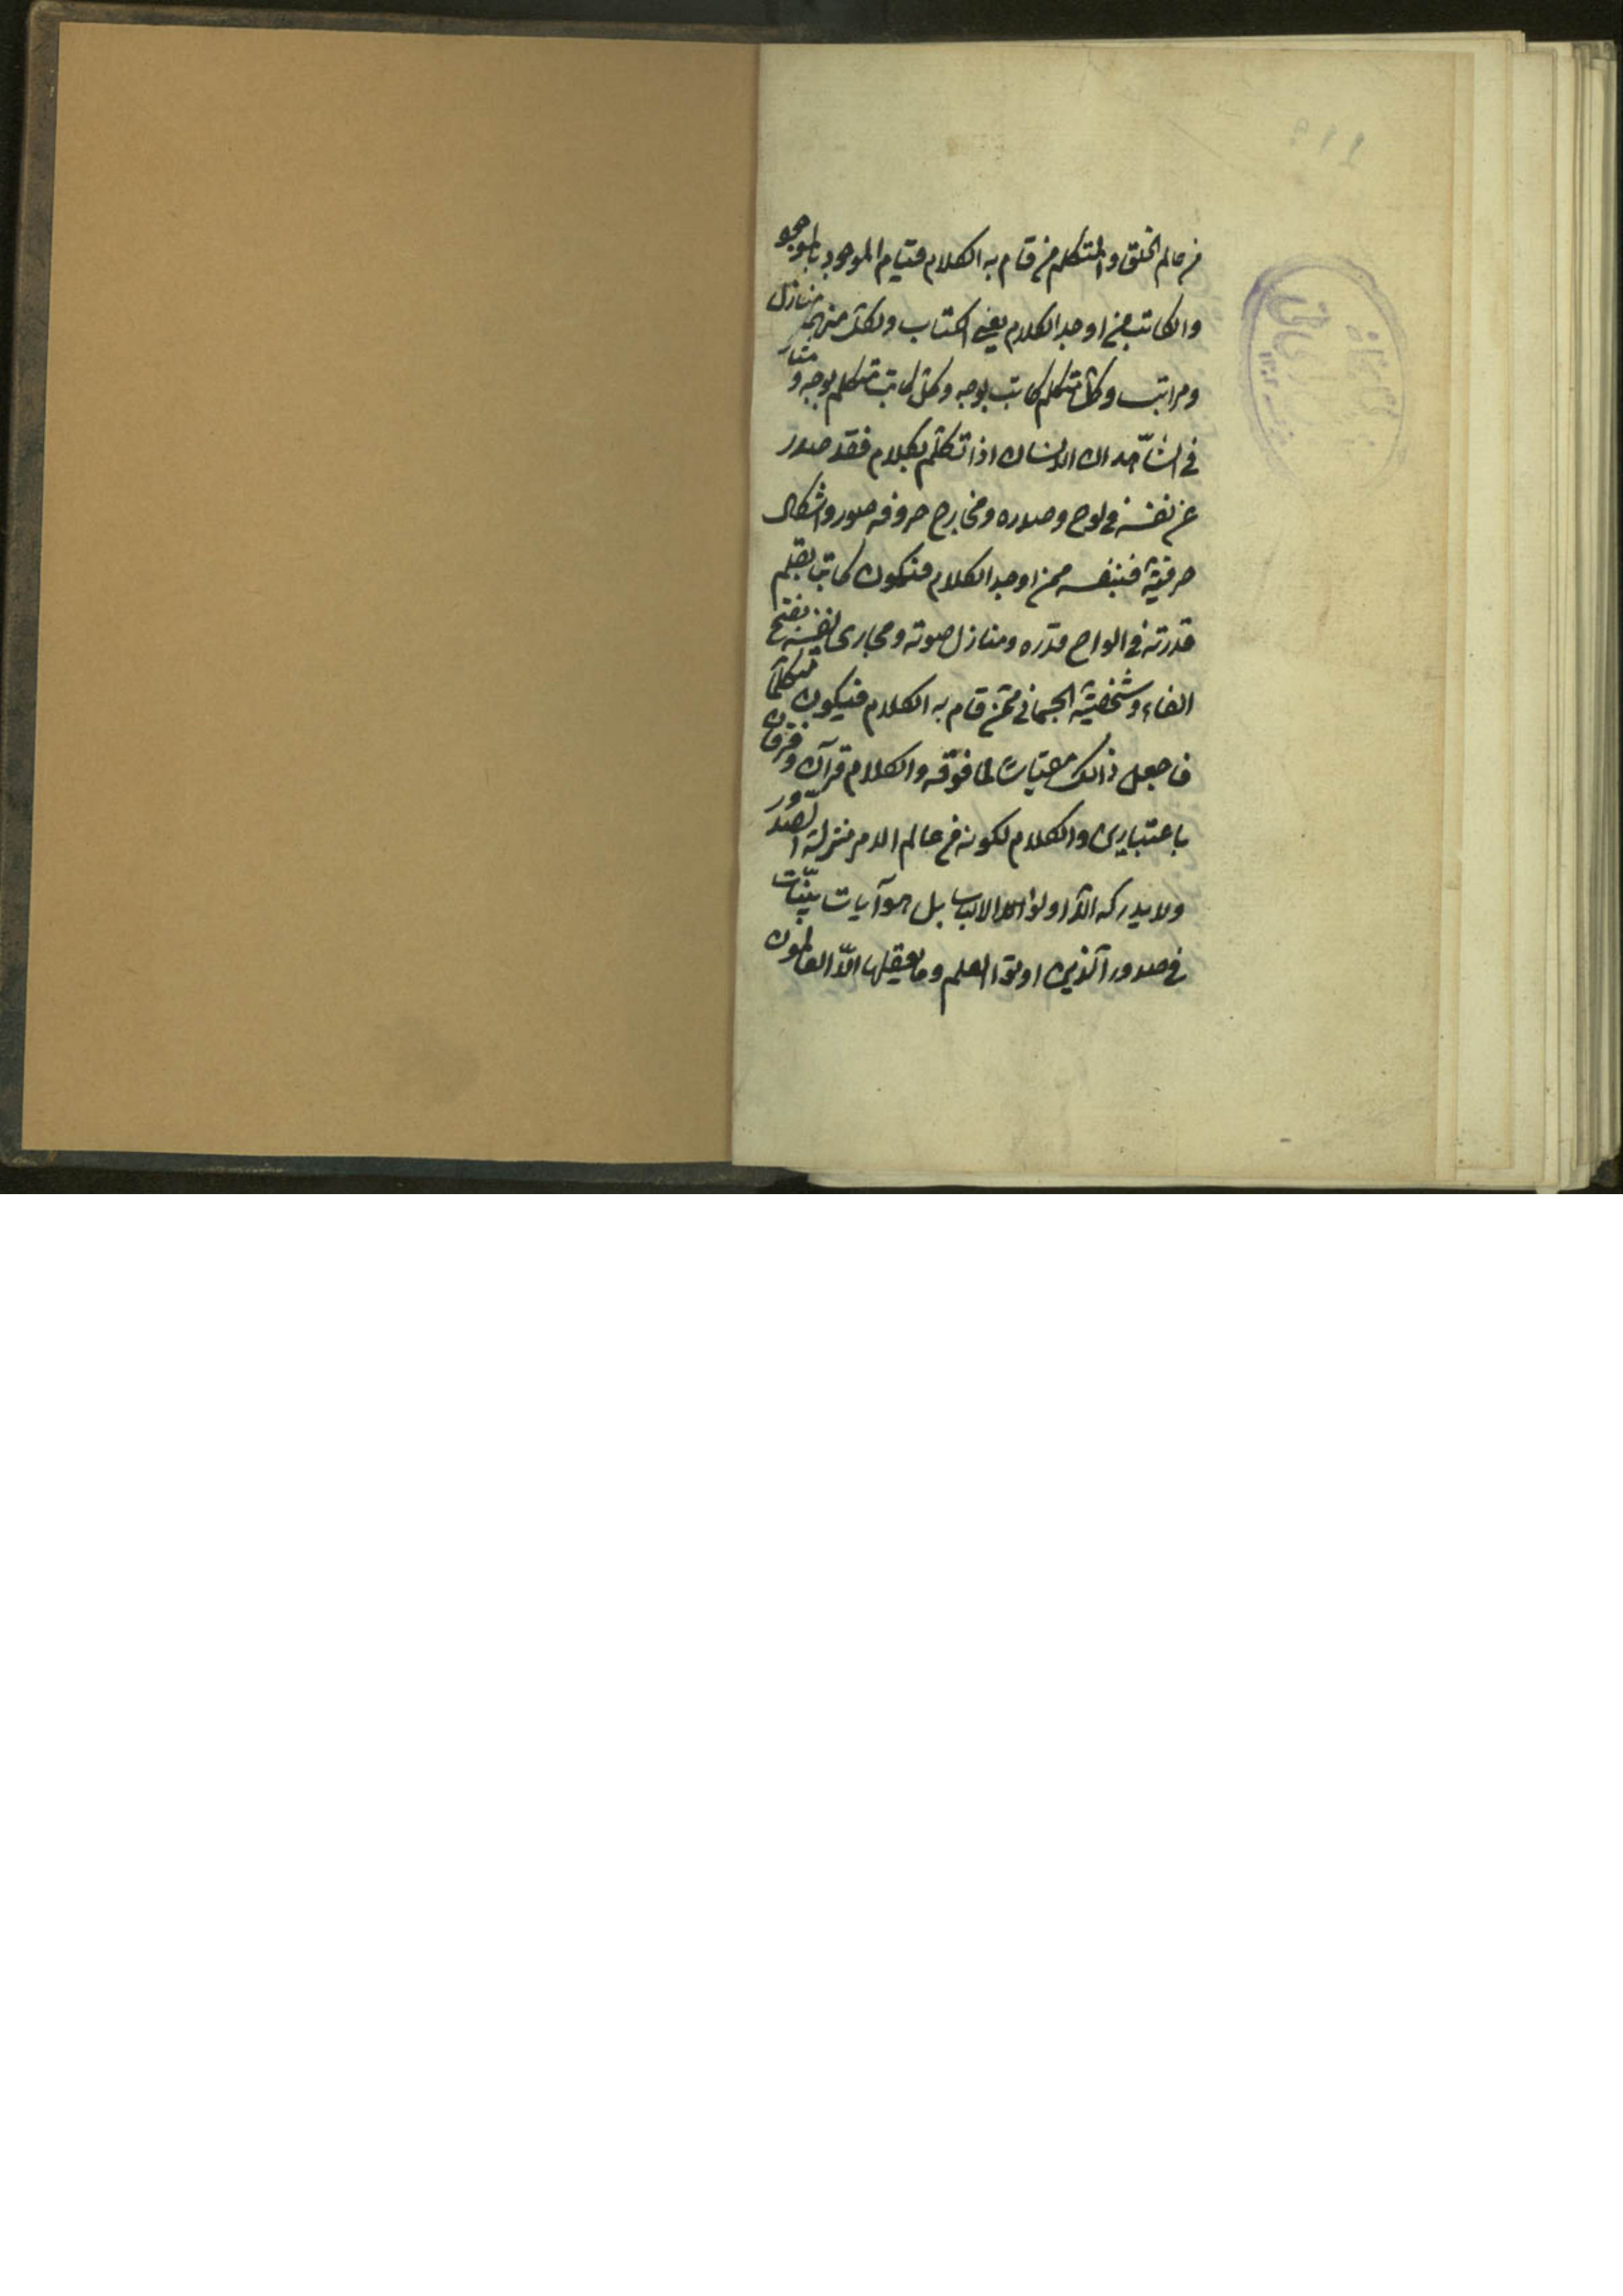 من عالم الخلق والمتكلم من قام به الكلام قيام الموجود بالموجو
والكاتب من اوجد الكلام يعنى الكتاب ولكل منهما منازل
ومراتب وكل متكلم كاتب بوجه وكل كاتب متكلم بوجه و مثا
فى الشاهد ان الانسان اذا تكلم بكلام فقد صدر
عن نفسه فى لوح وصدره ومخارج حروفه صور واشكال
حرفية فنفسه ممن اوجد الكلام فتكون كاتبا بقلم
قدرته فى الواح قدره ومنازل صوته ومجارى نفسه بفتح
الفاء وشخصية الجسمانى ممن قام به الكلام فيكون متكلما
فاجعل ذالك مقياسا لما فوقه والكلام قرآن وفرقان
باعتبارين والكلام لكونه من عالم الامر منزله الصدور
ولا يدركه الا اولوا الالباب بل هو آيات بينات
فى صدور الذين اوتوا العلم وما يعقلها الا العالمون